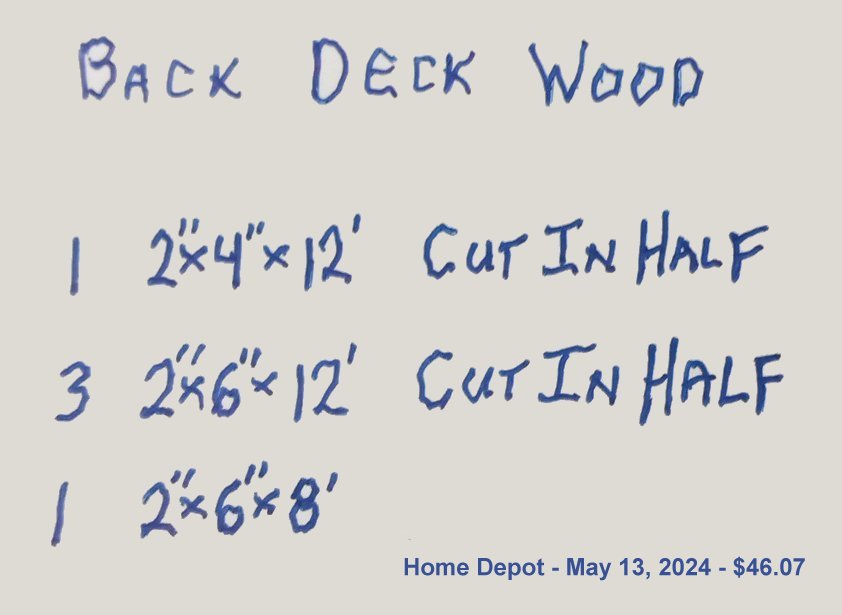 BACK DECK WOOD
1 2"×4"×12' CUT IN HALF
3 2"×6"×12' CUT IN HALF
1 2"×6"×8'
Home Depot - May 13, 2024 - $46.07